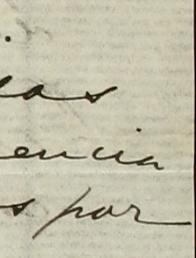 las
encia
s por